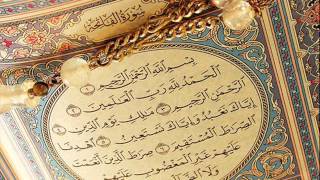 سورة الفاتحة
بِسْمِ اللَّهِ الرَّحْمَٰنِ الرَّحِيمِ ١
الْحَمْدُ لِلَّهِ رَبِّ الْعَالَمِينَ ٢
الرَّحْمَٰنِ الرَّحِيمِ ٣ مَالِكِ يَوْمِ الدِّينِ ٤
إِيَّاكَ نَعْبُدُ وَإِيَّاكَ نَسْتَعِينُ ٥ اهْدِنَا
الصِّرَاطَ الْمُسْتَقِيمَ ٦ صِرَاطَ الَّذِينَ أَنْعَمْتَ
عَلَيْهِمْ غَيْرِ الْمَغْضُوبِ عَلَيْهِمْ
وَلَا الضَّالِّينَ